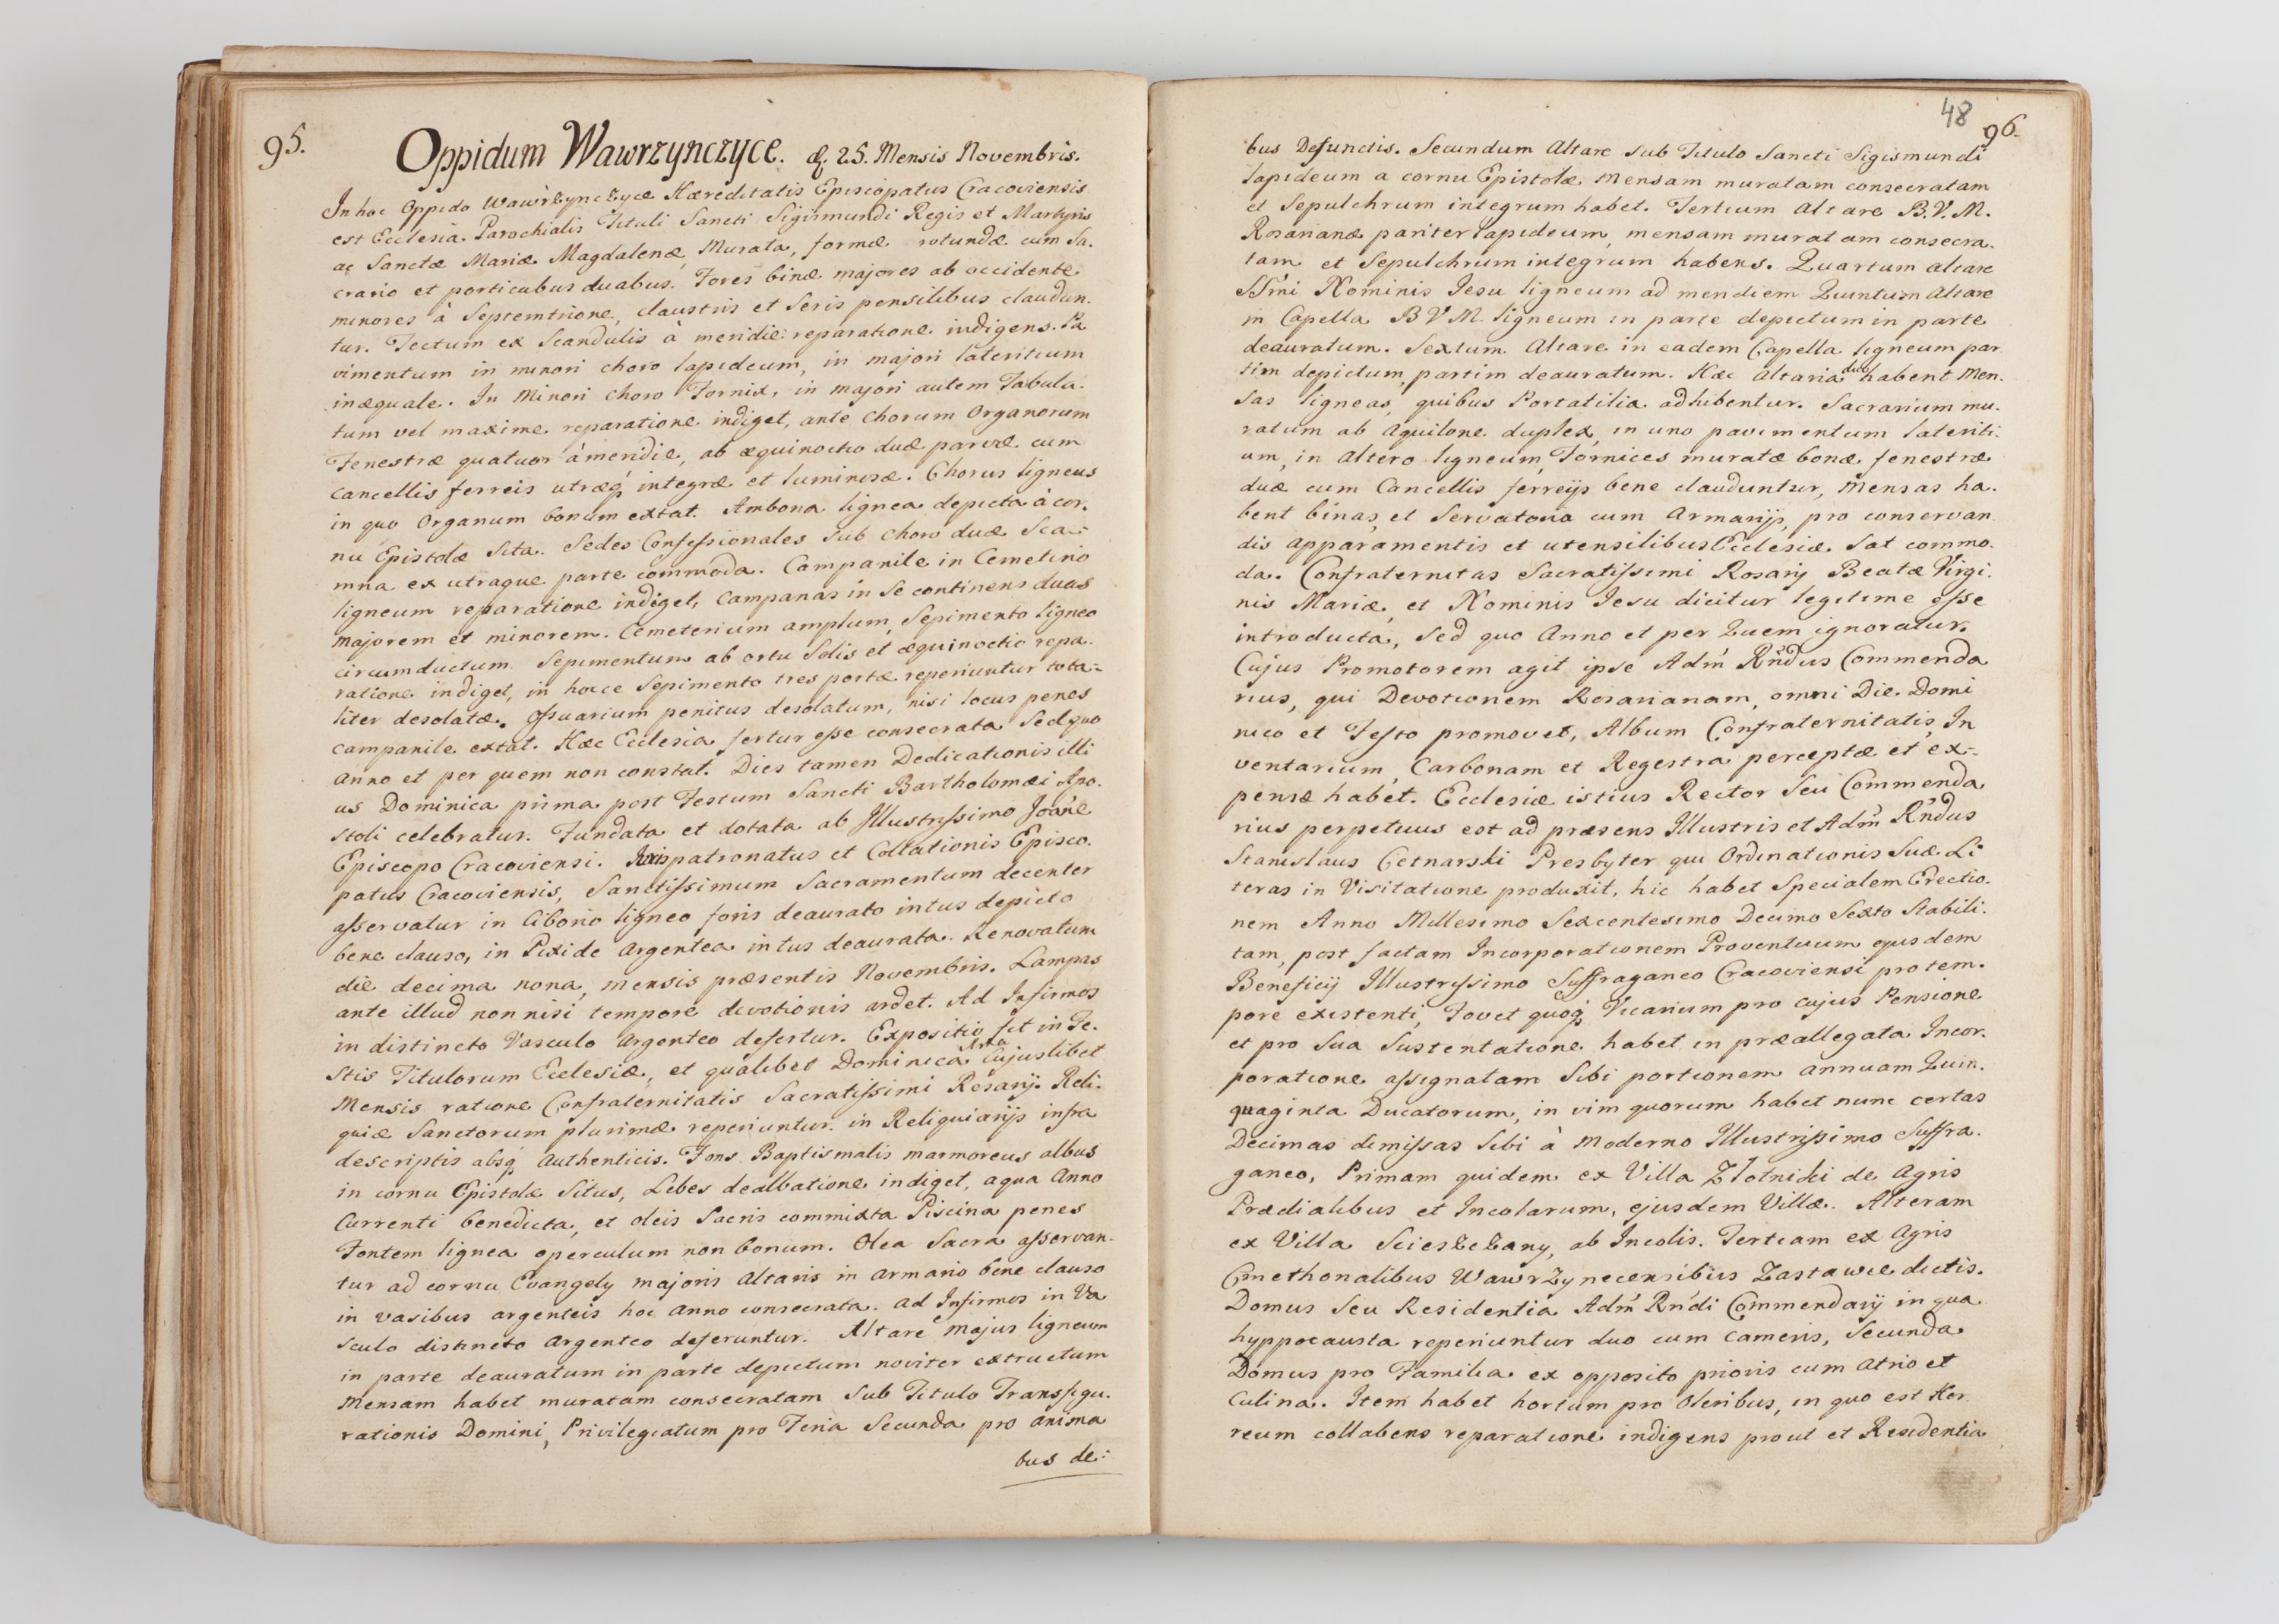 95.
Oppidum Wawrzynczyce. d. 25. Mensis Novembris.
In hoc Oppido Wawrzynczyce Hæreditatis Episcopatus Cracoviensis
est Ecclesia Parochialis Tituli Sancti Sigismundi Regis et Martyris
ac Sanctæ Mariæ Magdalenæ, Murata, formæ rotundæ cum Sa-
crario et porticubus duabus. Fores binæ majores ab occidente
minores à Septemtrione, claustris et Seris pensilibus claudun-
tur. Tectum ex Scandulis à meridie reparatione indigens. Pa
vimentum in minori choro lapideum, in majori lateritium
inæquale. In Minori Choro Fornix, in majori autem Tabula-
tum vel maxime reparatione indiget, ante Chorum Organorum
Fenestræ quatuor à meridie, ab æquinoctio duæ parvæ cum
Cancellis ferreis utræq; integræ et luminosæ. Chorus ligneus
in quo Organum bonum extat. Ambona lignea depicta à cor-
nu Epistolæ Sita. Sedes Confessionales Sub Choro duæ Sca-
mna ex utraque parte commoda. Campanile in Cemeterio
ligneum reparatione indiget, Campanas in Se continens duas
majorem et minorem. Cemeterium amplum, Sepimento ligneo
circumductum Sepimentum ab ortu Solis et æquinoctio repa-
ratione indiget, in hocce Sepimento tres portæ reperiuntur tota=
liter desolatæ. Ossuarium penitus desolatum, nisi locus penes
Campanile extat. Hæc Ecclesia fertur esse consecrata Sed quo
Anno et per quem non constat. Dies tamen Dedicationis illi
us Dominica prima post Festum Sancti Bartholomæi Apo-
stoli celebratur. Fundata et dotata ab Illustrissimo Joane
Episcopo Cracoviensi. Jurispatronatus et Collationis Episco-
patus Cracoviensis, Sanctissimum Sacramentum decenter
asservatur in Ciborio ligneo foris deaurato intus depicto
bene clauso, in Pixide Argentea intus deaurata. Renovatum
die decima nona, mensis præsentis Novembris. Lampas
ante illud non nisi tempore devotionis ardet. Ad Infirmos
in distincto Vasculo Argenteo defertur. Expositio fit in Fe-
stis Titulorum Ecclesiæ, et qualibet Dominica Cujuslibet
Mensis ratione Confraternitatis Sacratissimi Rosarij. Reli-
quiæ Sanctorum plurimæ reperiuntur in Reliquiarijs infra
descriptis absq; Authenticis. Fons Baptismalis marmoreus albus
in cornu Epistolæ Situs, Lebes dealbatione indiget, aqua Anno
Currenti benedicta, et oleis Sacris commixta Piscina penes
Fontem lignea operculum non bonum. Olea Sacra asservan-
tur ad cornu Evangely majoris Altaris in Armario bene clauso
in vasibus argenteis hoc Anno consecrata. ad Infirmos in Va
sculo distincto Argenteo deferuntur. Altare majus ligneum
in parte deauratum in parte depictum noviter extructum
Mensam habet muratam consecratam Sub Titulo Transfigu-
rationis Domini, Privilegiatum pro Feria Secunda pro anima
bus de:
48
96.
bus Defunctis. Secundum Altare Sub Titulo Sancti Sigismundi
lapideum a cornu Epistolæ Mensam muratam consecratam
et Sepulchrum integrum habet. Tertium Altare B.V.M.
Rosarianæ pariter lapideum, mensam muratam consecra-
tam et Sepulchrum integrum habens. Quartum altare
SSmi Nominis Jesu ligneum ad meridiem Quintum Altare
in Capella B V M. ligneum in parte depictum in parte
deauratum. Sextum Altare in eadem Capella ligneum par
tim depictum, partim deauratum. Hæc Altaria duo habent Men-
sas ligneas, quibus Portatilia adhibentur. Sacrarium mu-
ratum ab Aquilone duplex, in uno pavimentum lateriti-
um, in Altero ligneum, Fornices muratæ bonæ, fenestræ
duæ cum Cancellis ferreijs bene clauduntur, Mensas ha-
bent binas, et Servatoria cum Armarijs, pro conservan
dis apparamentis et utensilibus Ecclesiæ Sat commo-
da. Confraternitas Sacratissimi Rosarij Beatæ Virgi-
nis Mariæ, et Nominis Jesu dicitur legitime esse
introducta, Sed quo Anno et per Quem ignoratur.
Cujus Promotorem agit ipse Adm Rndus Commenda
rius, qui Devotionem Rosarianam, omni Die Domi
nico et Festo promovet, Album Confraternitatis, In
ventarium, Carbonam et Regestra perceptæ et ex-
pensæ habet. Ecclesiæ istius Rector Seu Commenda
rius perpetuus est ad præsens Illustris et Adm Rndus
Stanislaus Cetnarski Presbyter qui Ordinationis Suæ Li
teras in Visitatione produxit, hic habet Specialem Erectio-
nem Anno Millesimo Sexcentesimo Decimo Sexto Stabili-
tam, post factam Incorporationem Proventuum ejusdem
Beneficij Illustrissimo Suffraganeo Cracoviensi pro tem-
pore existenti, Fovet quoq; Vicarium pro cujus Pensione
et pro Sua Sustentatione habet in præallegata Incor-
poratione assignatam Sibi portionem annuam Quin-
quaginta Ducatorum, in vim quorum habet nunc certas
Decimas dimissas Sibi à Moderno Illustrissimo Suffra-
ganeo, Primam quidem ex Villa Złotniki de Agris
Prædialibus et Incolarum, ejusdem Villæ. Alteram
ex Villa Scieszczany, ab Incolis. Tertiam ex Agris
Cmethonalibus Wawrzynecensibus Zastawie dictis.
Domus Seu Residentia Adm Rndi Commendarij in qua
hyppocausta reperiuntur duo cum Cameris, Secunda
Domus pro Familia ex opposito prioris cum Atrio et
Culina. Item habet hortum pro Oleribus, in quo est Hor
reum collabens reparatione indigens prout et Residentia